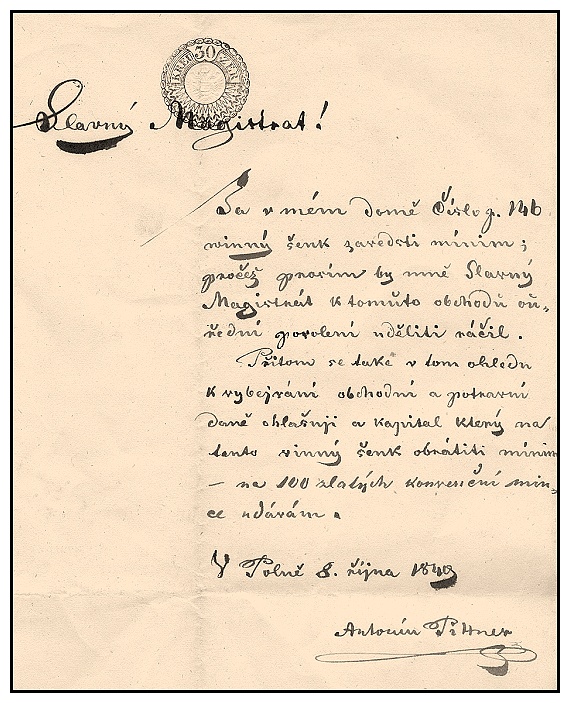 30 KREUZER
Slavný Magistrat!
Ja v mém domě Číslo g. 146
winný šenk zaredsti mínim;
pročež prosím by mně Slavný
Magistrát k tomůto obchodů ou-
řední povolení uděliti ráčil.
Přitom se take v tom ohledu
k vybejrání obchodní a potravní
daně ohlašuji a kapital který na
tento vinný šenk obrátiti mínim
— na 100 zlatých konvenční min-
ce udávám.
V Polně 8. října 1849
Antonín Pittner